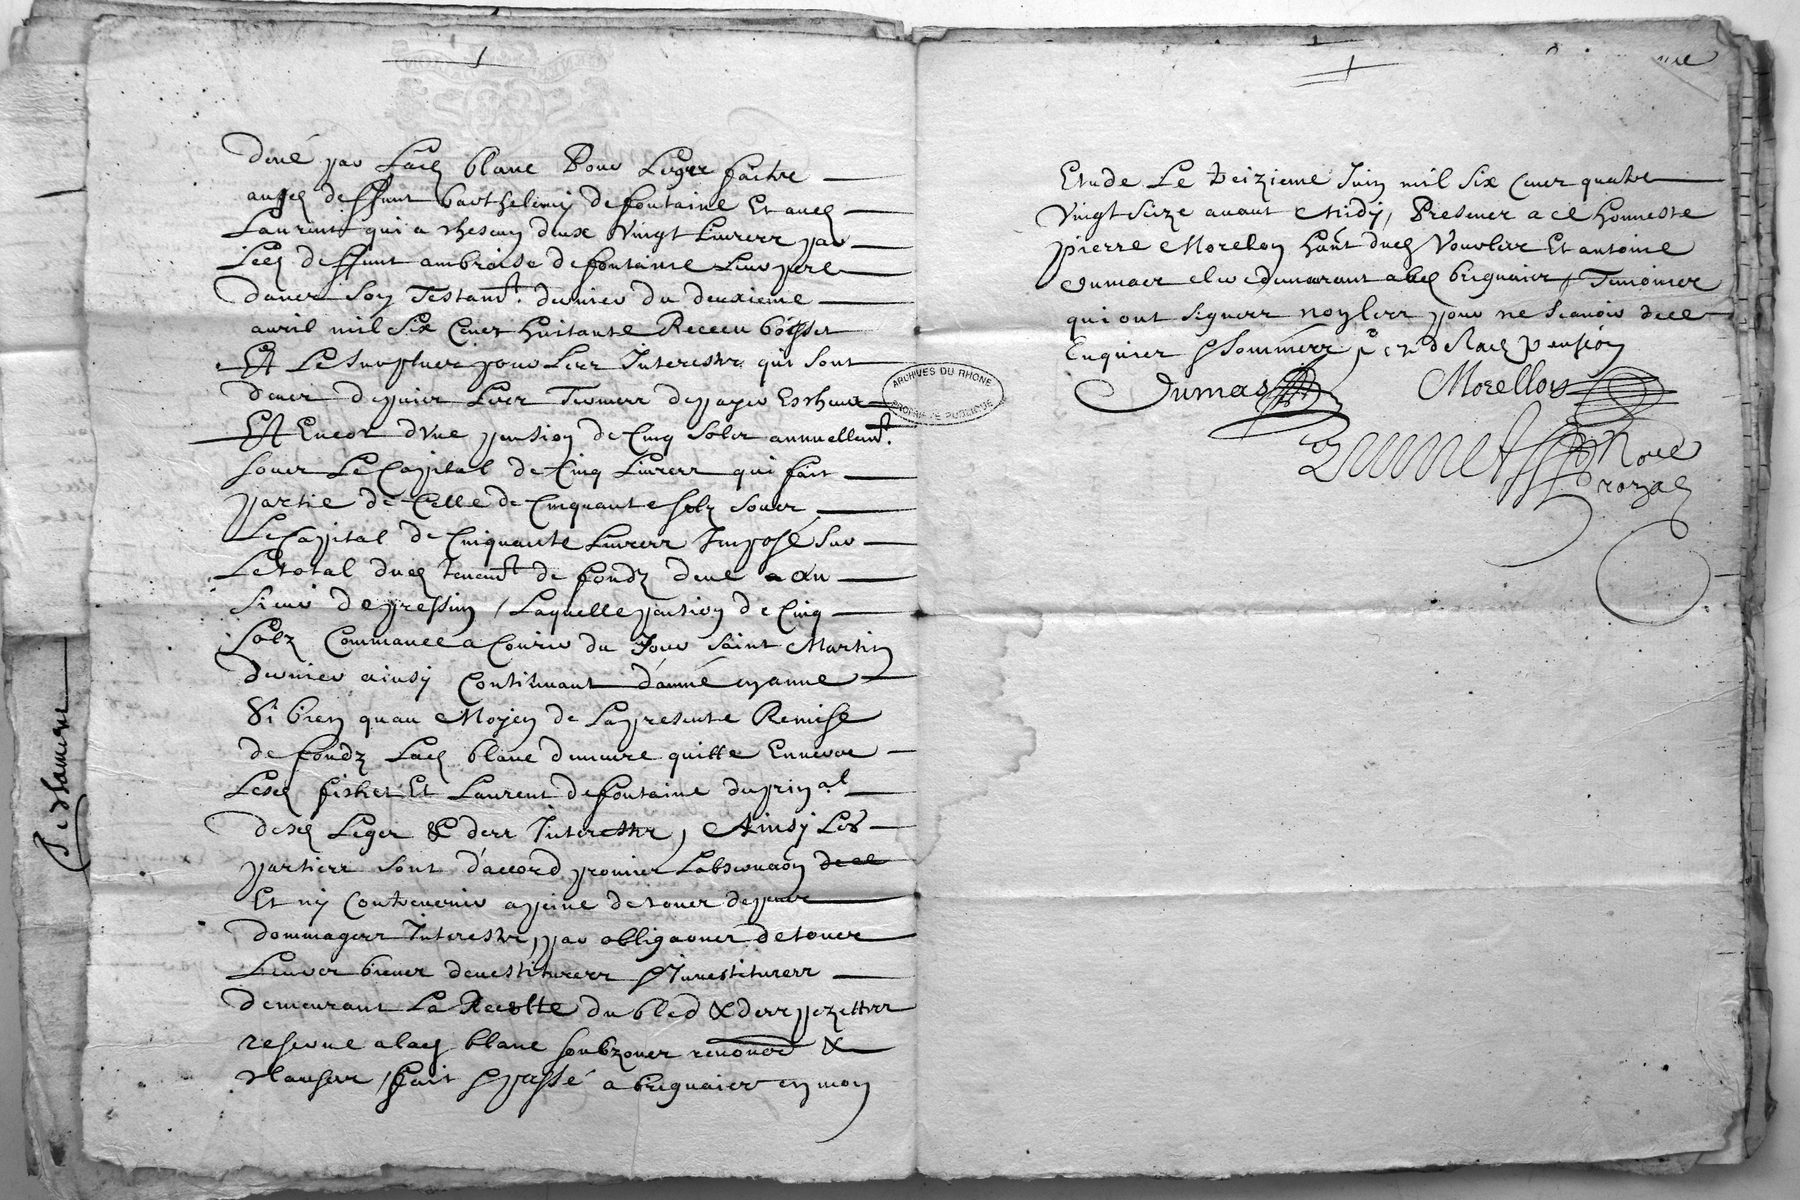 deüe par Lad blanc Pour Leger faitte
aud deffunt barthelemy defontaine Et aud
Laurent qui a chescun deux Vingt Livres par
led deffunt ambroise defontaine Leur pere
dans son Testamt. dernier du deuxieme
avril mil six Cens huitante Receu boisset
Et Le surplus pour Les Interestz qui sont
deues depuis Les Termes de payer Escheux
Et Encor d'Une pension de Cinq solz annuellemt.
soubz Le Capital de Cinq Livres qui fait
partie de Celle de Cinquante solz soubz
Le Capital de Cinquante Livres Imposé sur
Le total dud tenemt de fondz deue au
sieur depressin / Laquelle pention de Cinq
solz Commance a Courir du Jour saint Martin
dernier ainsy Continuant d'anné en anné
Si bien quau Moyen de La presente Remise
de fondz Lad blanc demeure quitte Envers
Lesd Et Laurent defontaine du prin.al
desd Leger & des Interestz, Ainsy Les
parties sont d'accord promis Lobservation
Et ny Contrevenir a peine de tous despens
dommages Interestz, par obligaōns de tous
Leurs biens devestitures & Investitures
demeurant La Recolte du bled & des pezettes
reserve a lad blanc soubz ses renonced &
clauses / fait & passé a brignais en mon
P. chamerre
Etude Le treizieme Juin mil six Cens quatre
Vingt seize avant Midy, Presens a ce honneste
pierre Morellon hānt dud Vourles Et antoine
dumas clerc demeurant aud brignais Temoins
qui ont signes non les pour ne scavoir de ce
Enquises & sommées
Dumas Morellon
Brunet Nore
Royal
ARCHIVES DU RHONE
PROPRIÉTÉ PUBLIQUE